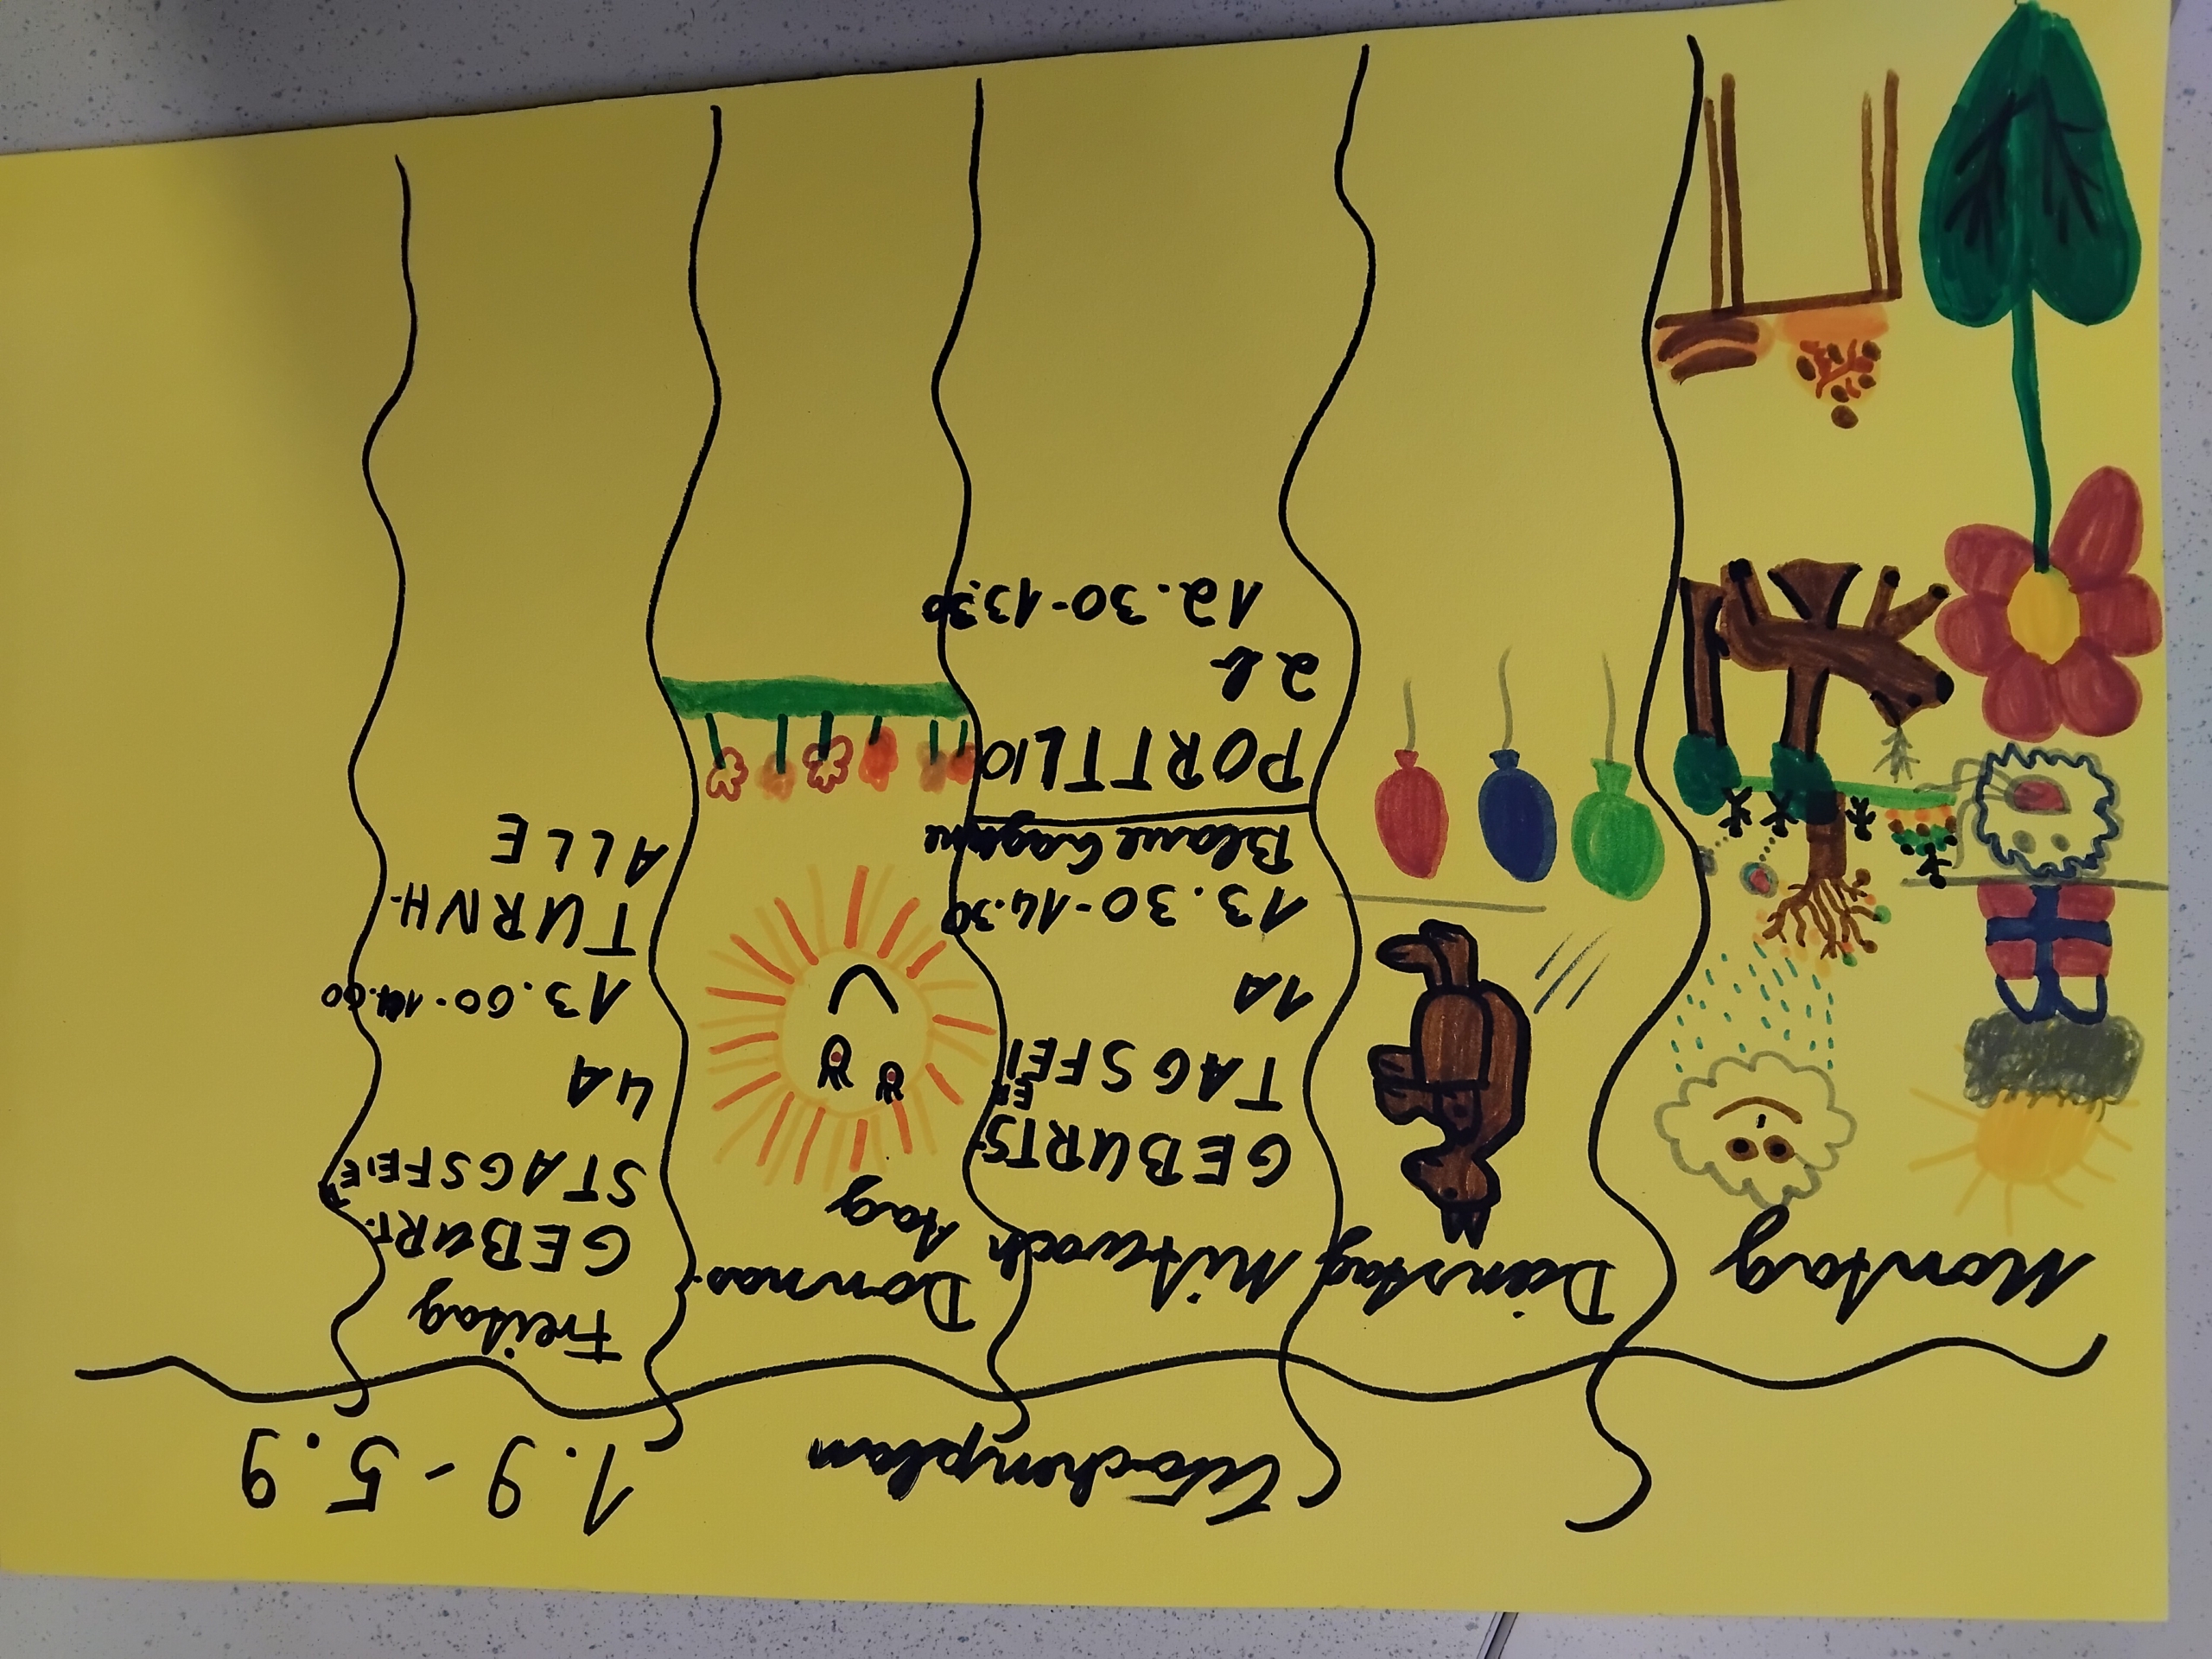 Wochenplan 1.9-5.9
Montag
Dienstag
Mittwoch
GEBURTS
TAGSFEI
ER
1A
13.30-14.30
Blaue
PORTTLIO
2b
12.30-13.30
Donnas.
tag
Freitag
GEBURT.
STAGSFEIE
4A
13.00-14.00
TURNH.
ALLE